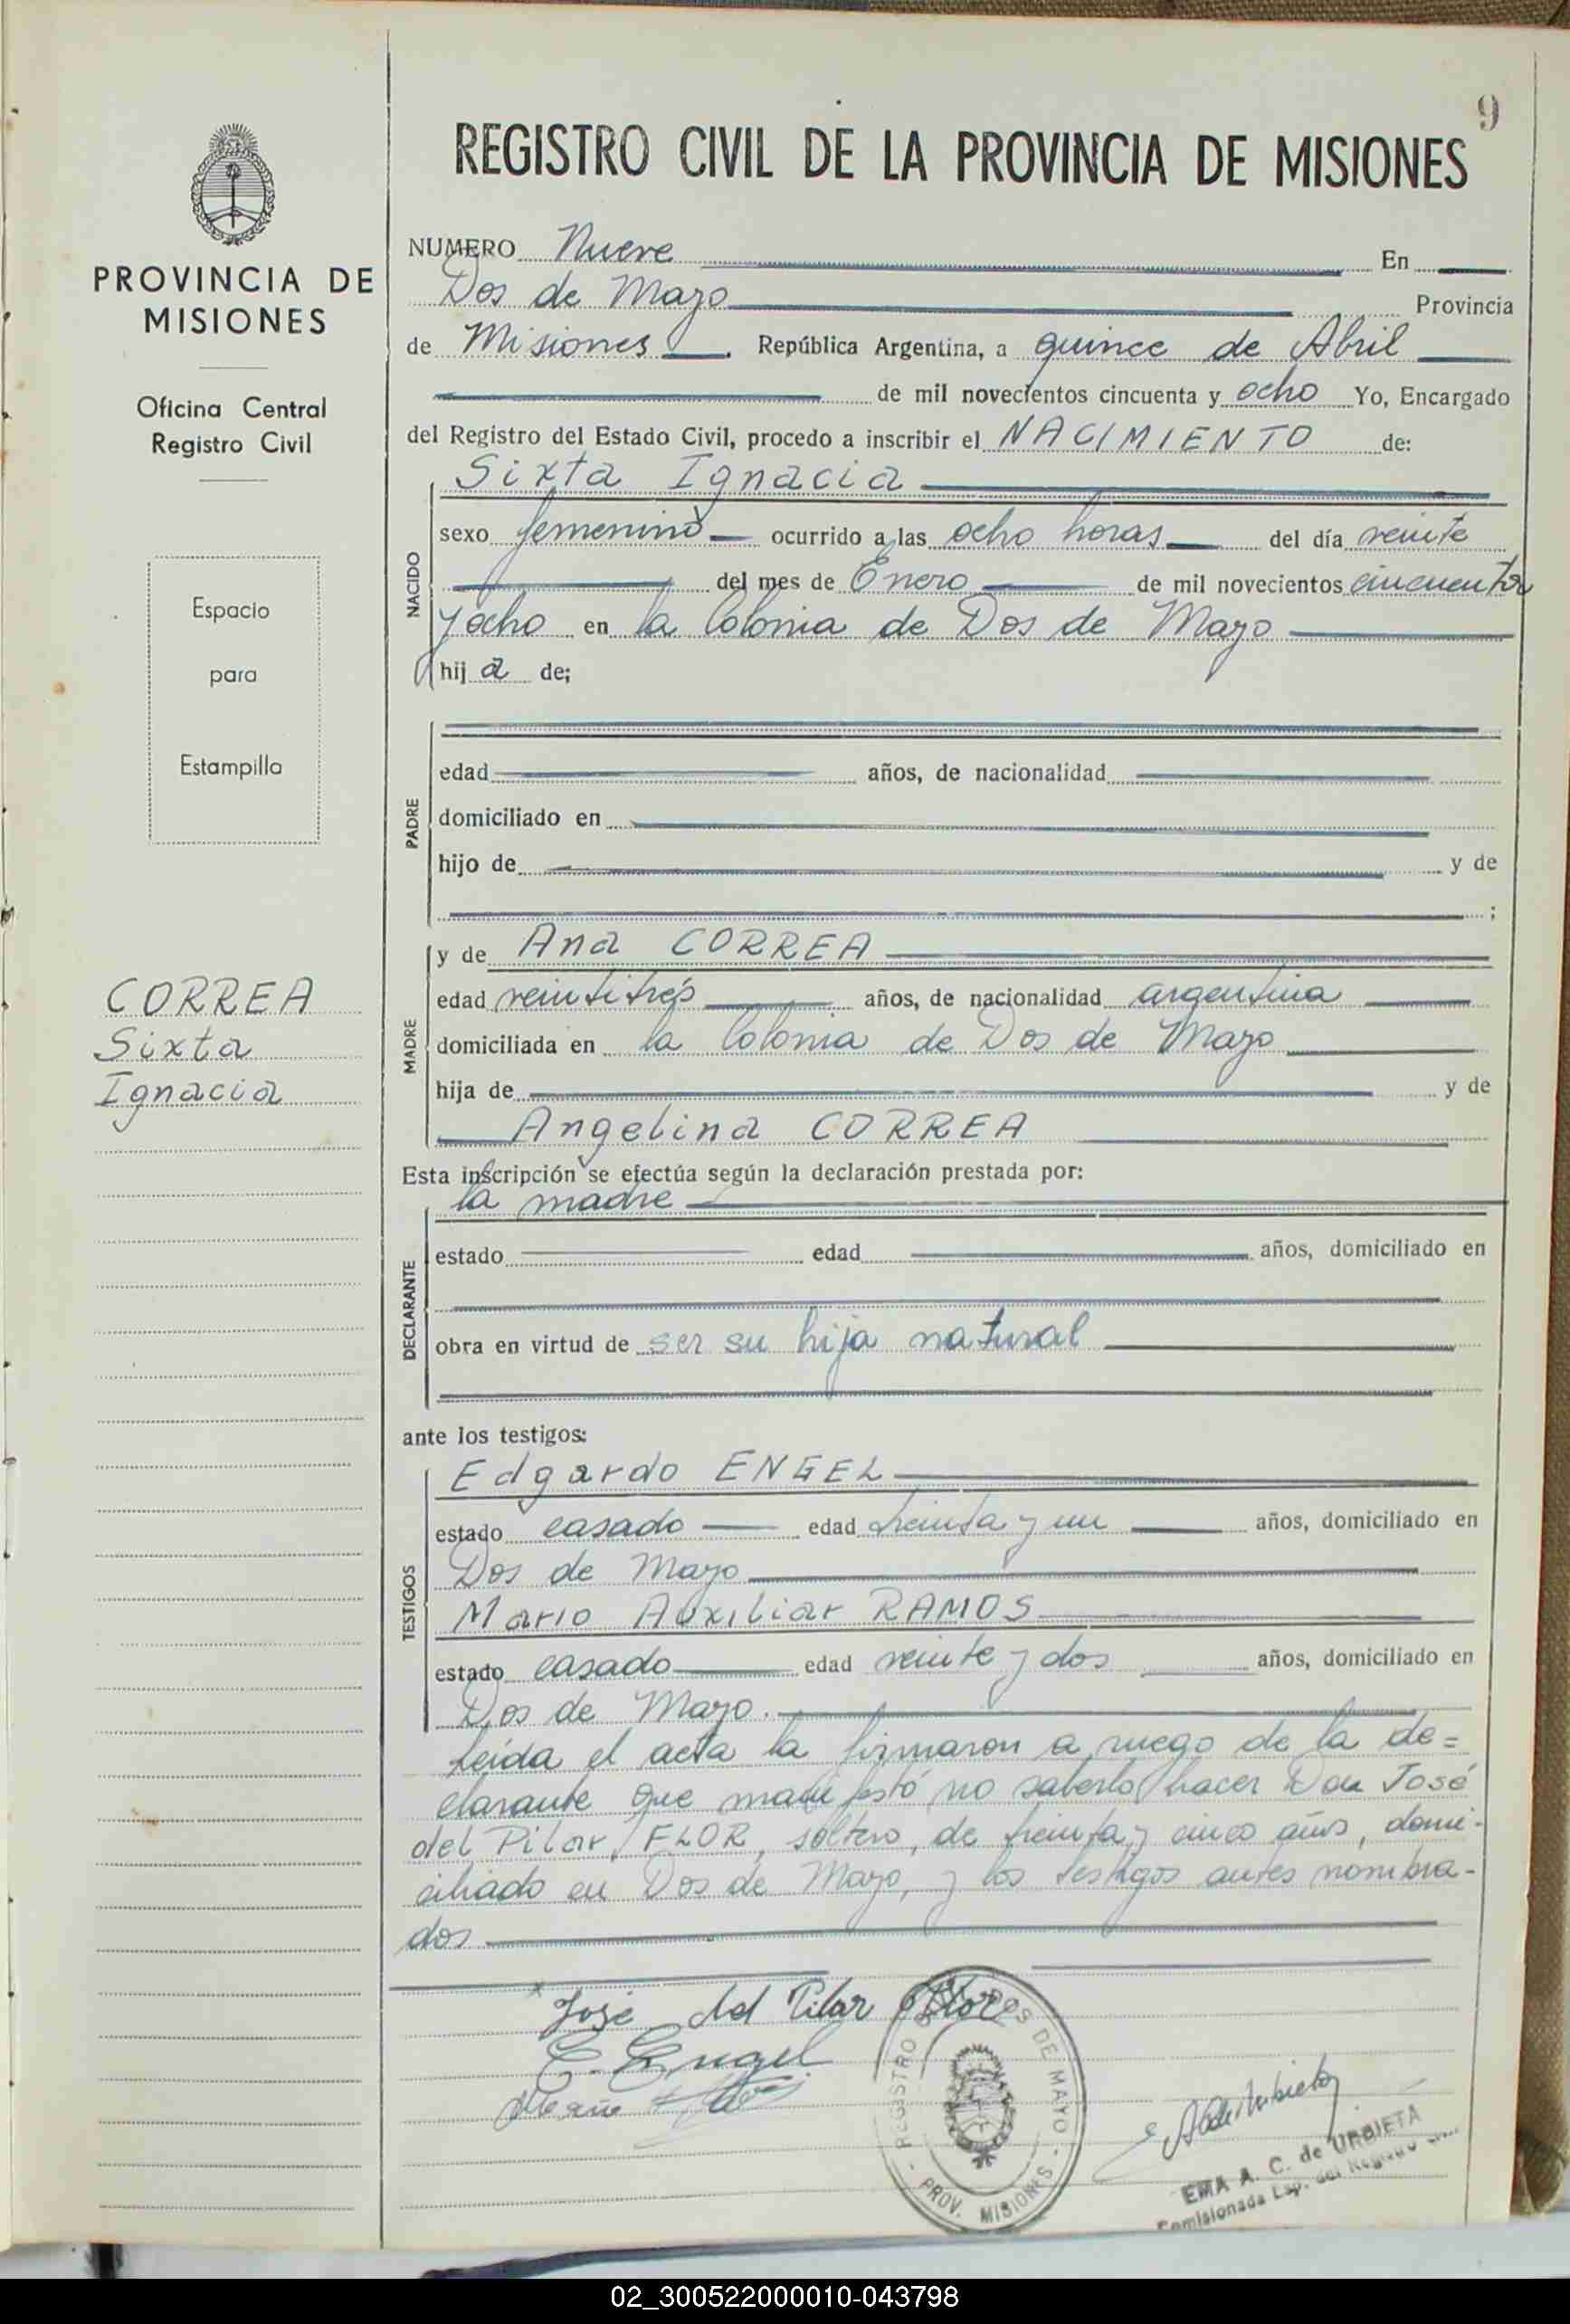 9
REGISTRO CIVIL DE LA PROVINCIA DE MISIONES
PROVINCIA DE
MISIONES
Oficina Central
Registro Civil
Espacio
para
Estampilla
CORREA
Sixta
Ignacia
NUMERO Nueve En
Dos de Mayo Provincia
de Misiones, República Argentina, a quince de Abril
de mil novecientos cincuenta y ocho Yo, Encargado
del Registro del Estado Civil, procedo a inscribir el NACIMIENTO de:
NACIDO
Sixta Ignacia
sexo femenino ocurrido a las ocho horas del día veinte
del mes de Enero de mil novecientos cincuenta
y ocho en la Colonia de Dos de Mayo
hija de;
PADRE
edad años, de nacionalidad
domiciliado en
hijo de y de
;
MADRE
y de Ana CORREA
edad veintitrés años, de nacionalidad argentina
domiciliada en la Colonia de Dos de Mayo
hija de y de
Angelina CORREA
Esta inscripción se efectúa según la declaración prestada por:
DECLARANTE
la madre
estado edad años, domiciliado en
obra en virtud de ser su hija natural
ante los testigos:
TESTIGOS
Edgardo ENGEL
estado casado edad treinta y un años, domiciliado en
Dos de Mayo
Mario Auxiliar RAMOS
estado casado edad veinte y dos años, domiciliado en
Dos de Mayo.
Leída el acta la firmaron a ruego de la de=
clarante que manifestó no saberlo hacer Don José
del Pilar FLOR, soltero, de treinta y cinco años, domi-
ciliado en Dos de Mayo, y los testigos antes nombra-
dos
José del Pilar Flor
E. Engel
REGISTRO DOS DE MAYO
PROV. MISIONES
EMA A. C. de URBIETA
Comisionada Esp. del Registro
02_300522000010-043798